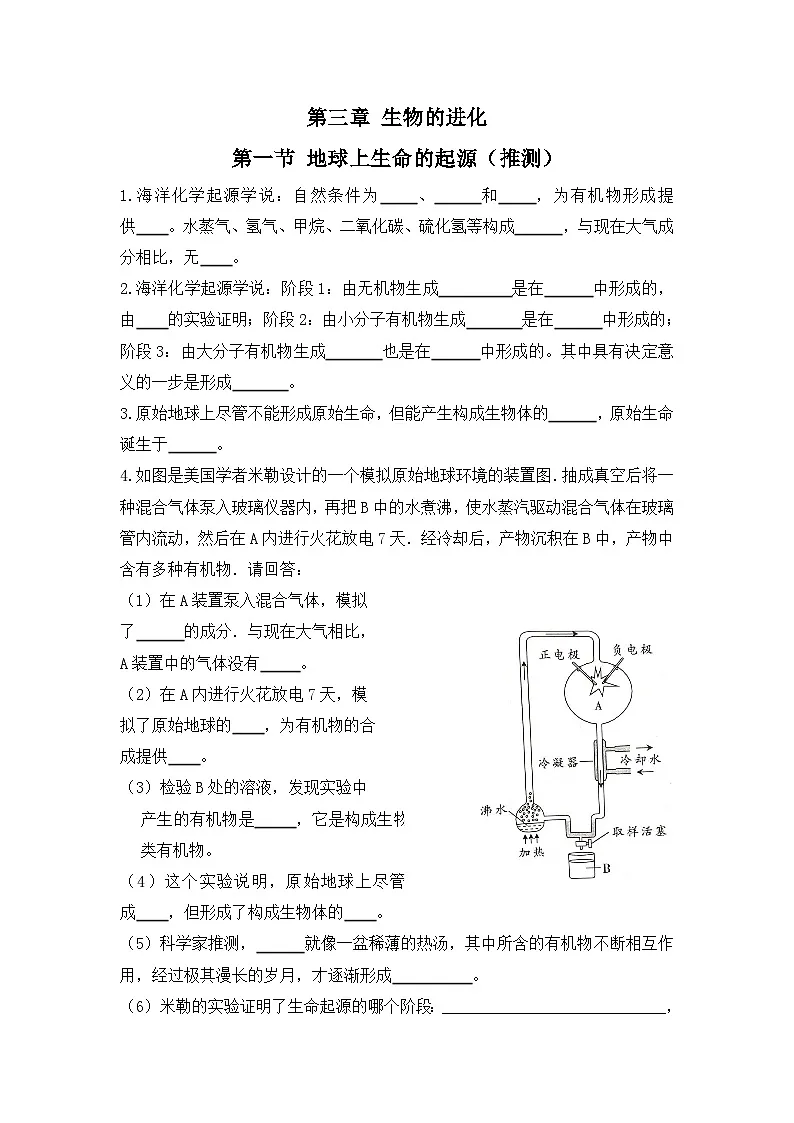 第三章 生物的进化
第一节 地球上生命的起源（推测）
1.海洋化学起源学说：自然条件为____、_____和____，为有机物形成提
供____。水蒸气、氢气、甲烷、二氧化碳、硫化氢等构成_____，与现在大气成
分相比，无____。
2.海洋化学起源学说：阶段1：由无机物生成_________是在______中形成的，
由____的实验证明；阶段2：由小分子有机物生成_______是在______中形成的；
阶段3：由大分子有机物生成_______也是在______中形成的。其中具有决定意
义的一步是形成_______。
3.原始地球上尽管不能形成原始生命，但能产生构成生物体的______，原始生命
诞生于______。
4.如图是美国学者米勒设计的一个模拟原始地球环境的装置图．抽成真空后将一
种混合气体泵入玻璃仪器内，再把B中的水煮沸，使水蒸汽驱动混合气体在玻璃
管内流动，然后在A内进行火花放电7天．经冷却后，产物沉积在B中，产物中
含有多种有机物．请回答：
（1）在A装置泵入混合气体，模拟
了______的成分．与现在大气相比，
A装置中的气体没有_____。
（2）在A内进行火花放电7天，模
拟了原始地球的____，为有机物的合
成提供____。
（3）检验B处的溶液，发现实验中
产生的有机物是_____，它是构成生物
类有机物。
（4）这个实验说明，原始地球上尽管
成____，但形成了构成生物体的____。
正电极
负电极
A
冷凝器
冷却水
沸水
取样活塞
加热
B
（5）科学家推测，______就像一盆稀薄的热汤，其中所含的有机物不断相互作
用，经过极其漫长的岁月，才逐渐形成__________。
（6）米勒的实验证明了生命起源的哪个阶段：____________________________，